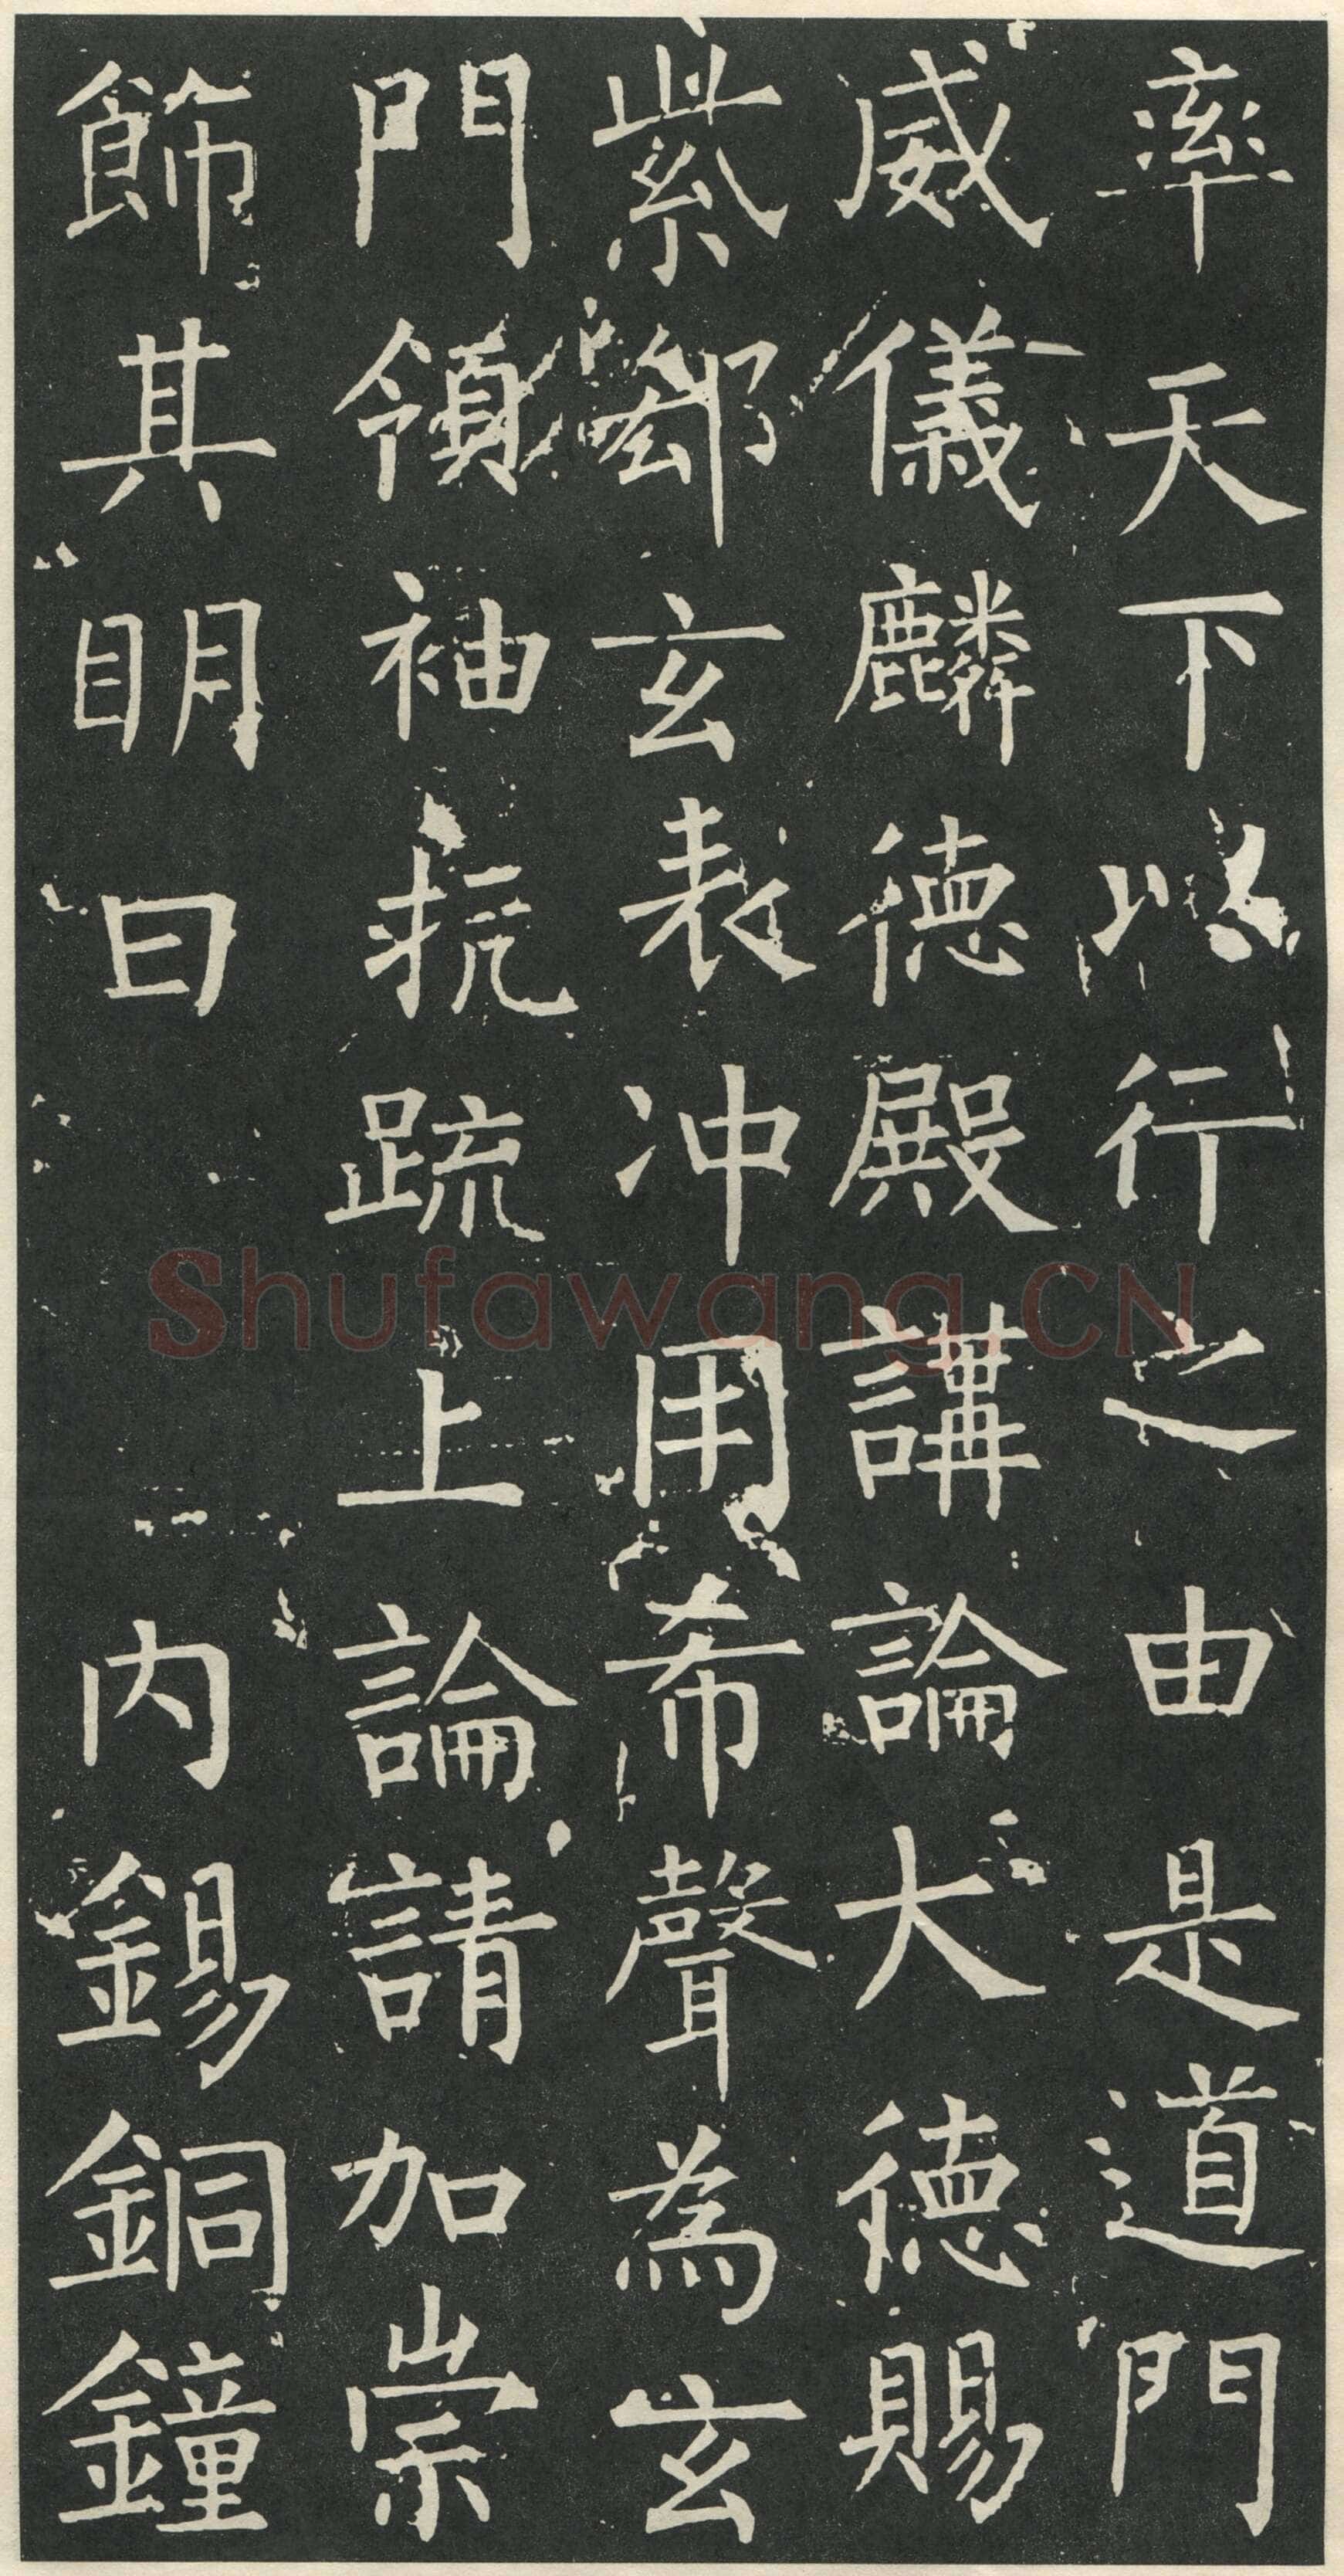 率天下以行之由是道門
威儀麟德殿講論大德賜
紫郄玄表冲用希聲為玄
門領袖抗疏上論請加崇
飾其明日 内錫銅鐘
Shufawang.CN